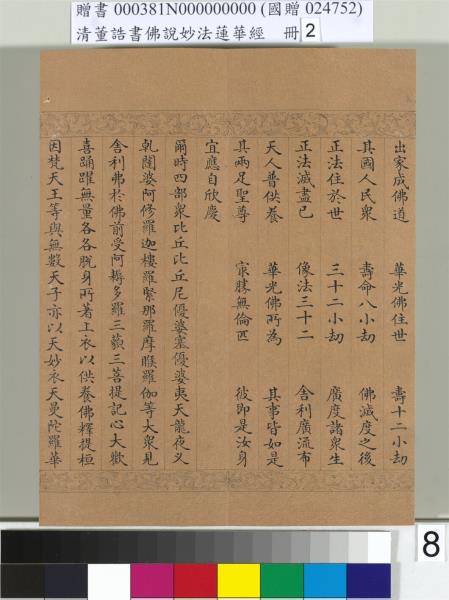 贈書 000381N000000000 (國贈 024752)
清董誥書佛說妙法蓮華經 冊 2
出家成佛道 華光佛住世 壽十二小劫
其國人民衆 壽命八小劫 佛滅度之後
正法住於世 三十二小劫 廣度諸衆生
正法滅盡已 像法三十二 舍利廣流布
天人普供養 華光佛所為 其事皆如是
其兩足聖尊 宷勝無倫匹 彼即是汝身
宜應自欣慶
爾時四部衆比丘比丘尼優婆塞優婆夷天龍夜叉
乾闥婆阿修羅迦樓羅緊那羅摩睺羅伽等大衆見
舍利弗於佛前受阿耨多羅三藐三菩提記心大歡
喜踊躍無量各各脫身所著上衣以供養佛釋提桓
因梵天王等與無數天子亦以天妙衣天曼陀羅華
8